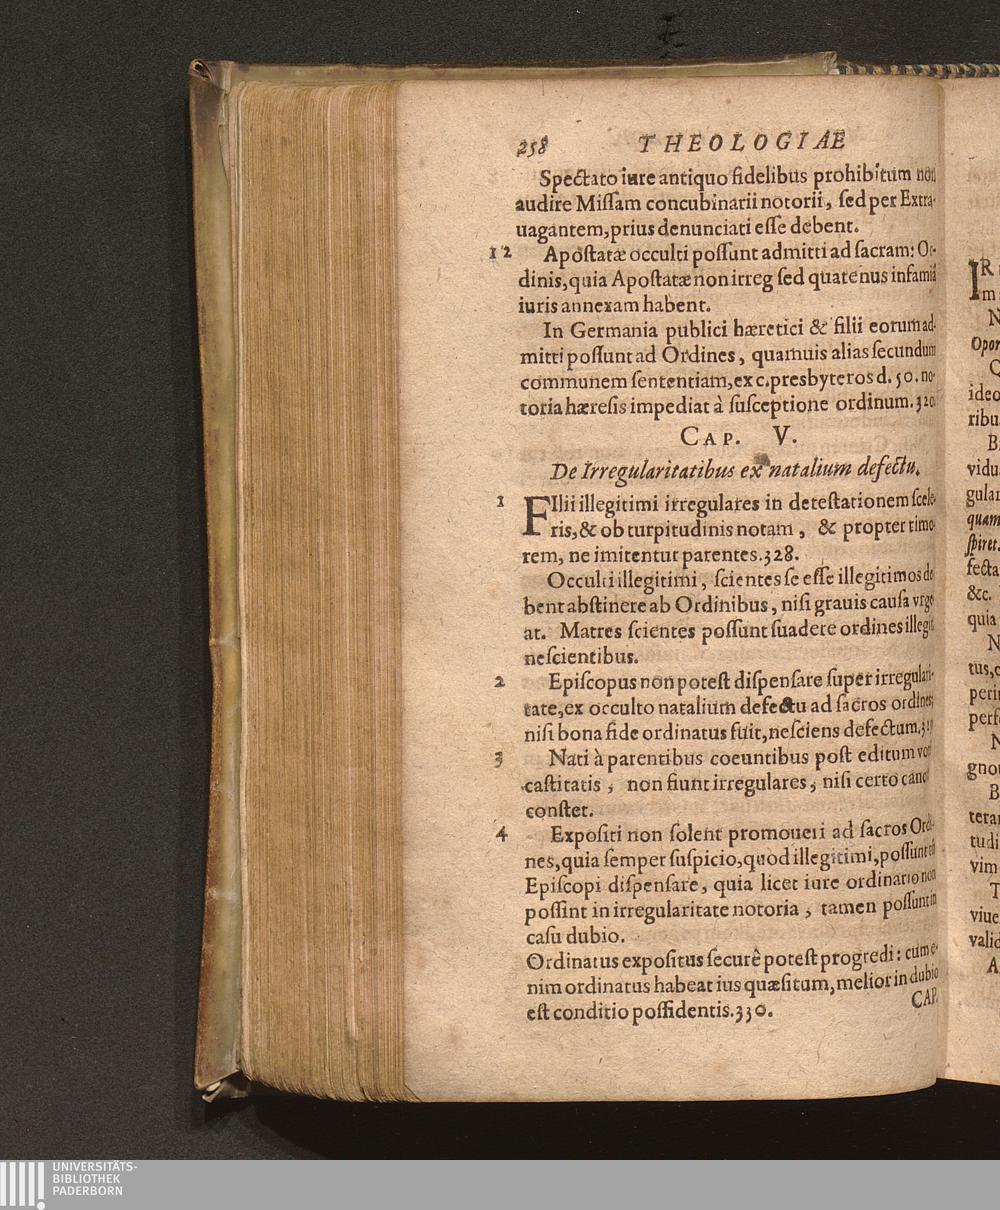 258 THEOLOGIAE
Spectato iure antiquo fidelibus prohibitum non
audire Missam concubinarii notorii, sed per Extra-
uagantem, prius denunciati esse debent.
12 Apostatæ occulti possunt admitti ad sacram: Or-
dinis, quia Apostatæ non irreg sed quatenus infamiã
iuris annexam habent.
In Germania publici hæretici & filii eorum ad-
mitti possunt ad Ordines, quamuis alias secundum
communem sententiam, ex c. presbyteros d. 50. no-
toria hæresis impediat à susceptione ordinum. 320.
CAP. V.
De Irregularitatibus ex natalium defectu.
1 FIlii illegitimi irregulares in detestationem scele-
ris, & ob turpitudinis notam, & propter timo-
rem, ne imitentur parentes. 328.
Occulti illegitimi, scientes se esse illegitimos de
bent abstinere ab Ordinibus, nisi grauis causa vrge
at. Matres scientes possunt suadere ordines illegit
nescientibus.
2 Episcopus non potest dispensare super irregulari-
tate, ex occulto natalium defectu ad sacros ordines;
nisi bona fide ordinatus fuit, nesciens defectum.
3 Nati à parentibus coeuntibus post editum
castitatis, non fiunt irregulares, nisi certo
constet.
4 Expositi non solent promoueri ad sacros Ordi-
nes, quia semper suspicio, quod illegitimi, possunt
Episcopi dispensare, quia licet iure ordinario non
possint in irregularitate notoria, tamen possunt in
casu dubio.
Ordinatus expositus securê potest progredi: cum e-
nim ordinatus habeat ius quæsitum, melior in dubio
est conditio possidentis. 330.
CAP.
IR
im
N
Opor
Q
ideo
ribu
vidu
gular
quam
spiret.
fecta
&c.
quia
N
tus,
peri
perf
N
gno
B
tera
tudi
vim
T
viue
valid
A
UNIVERSITÄTS-
BIBLIOTHEK
PADERBORN